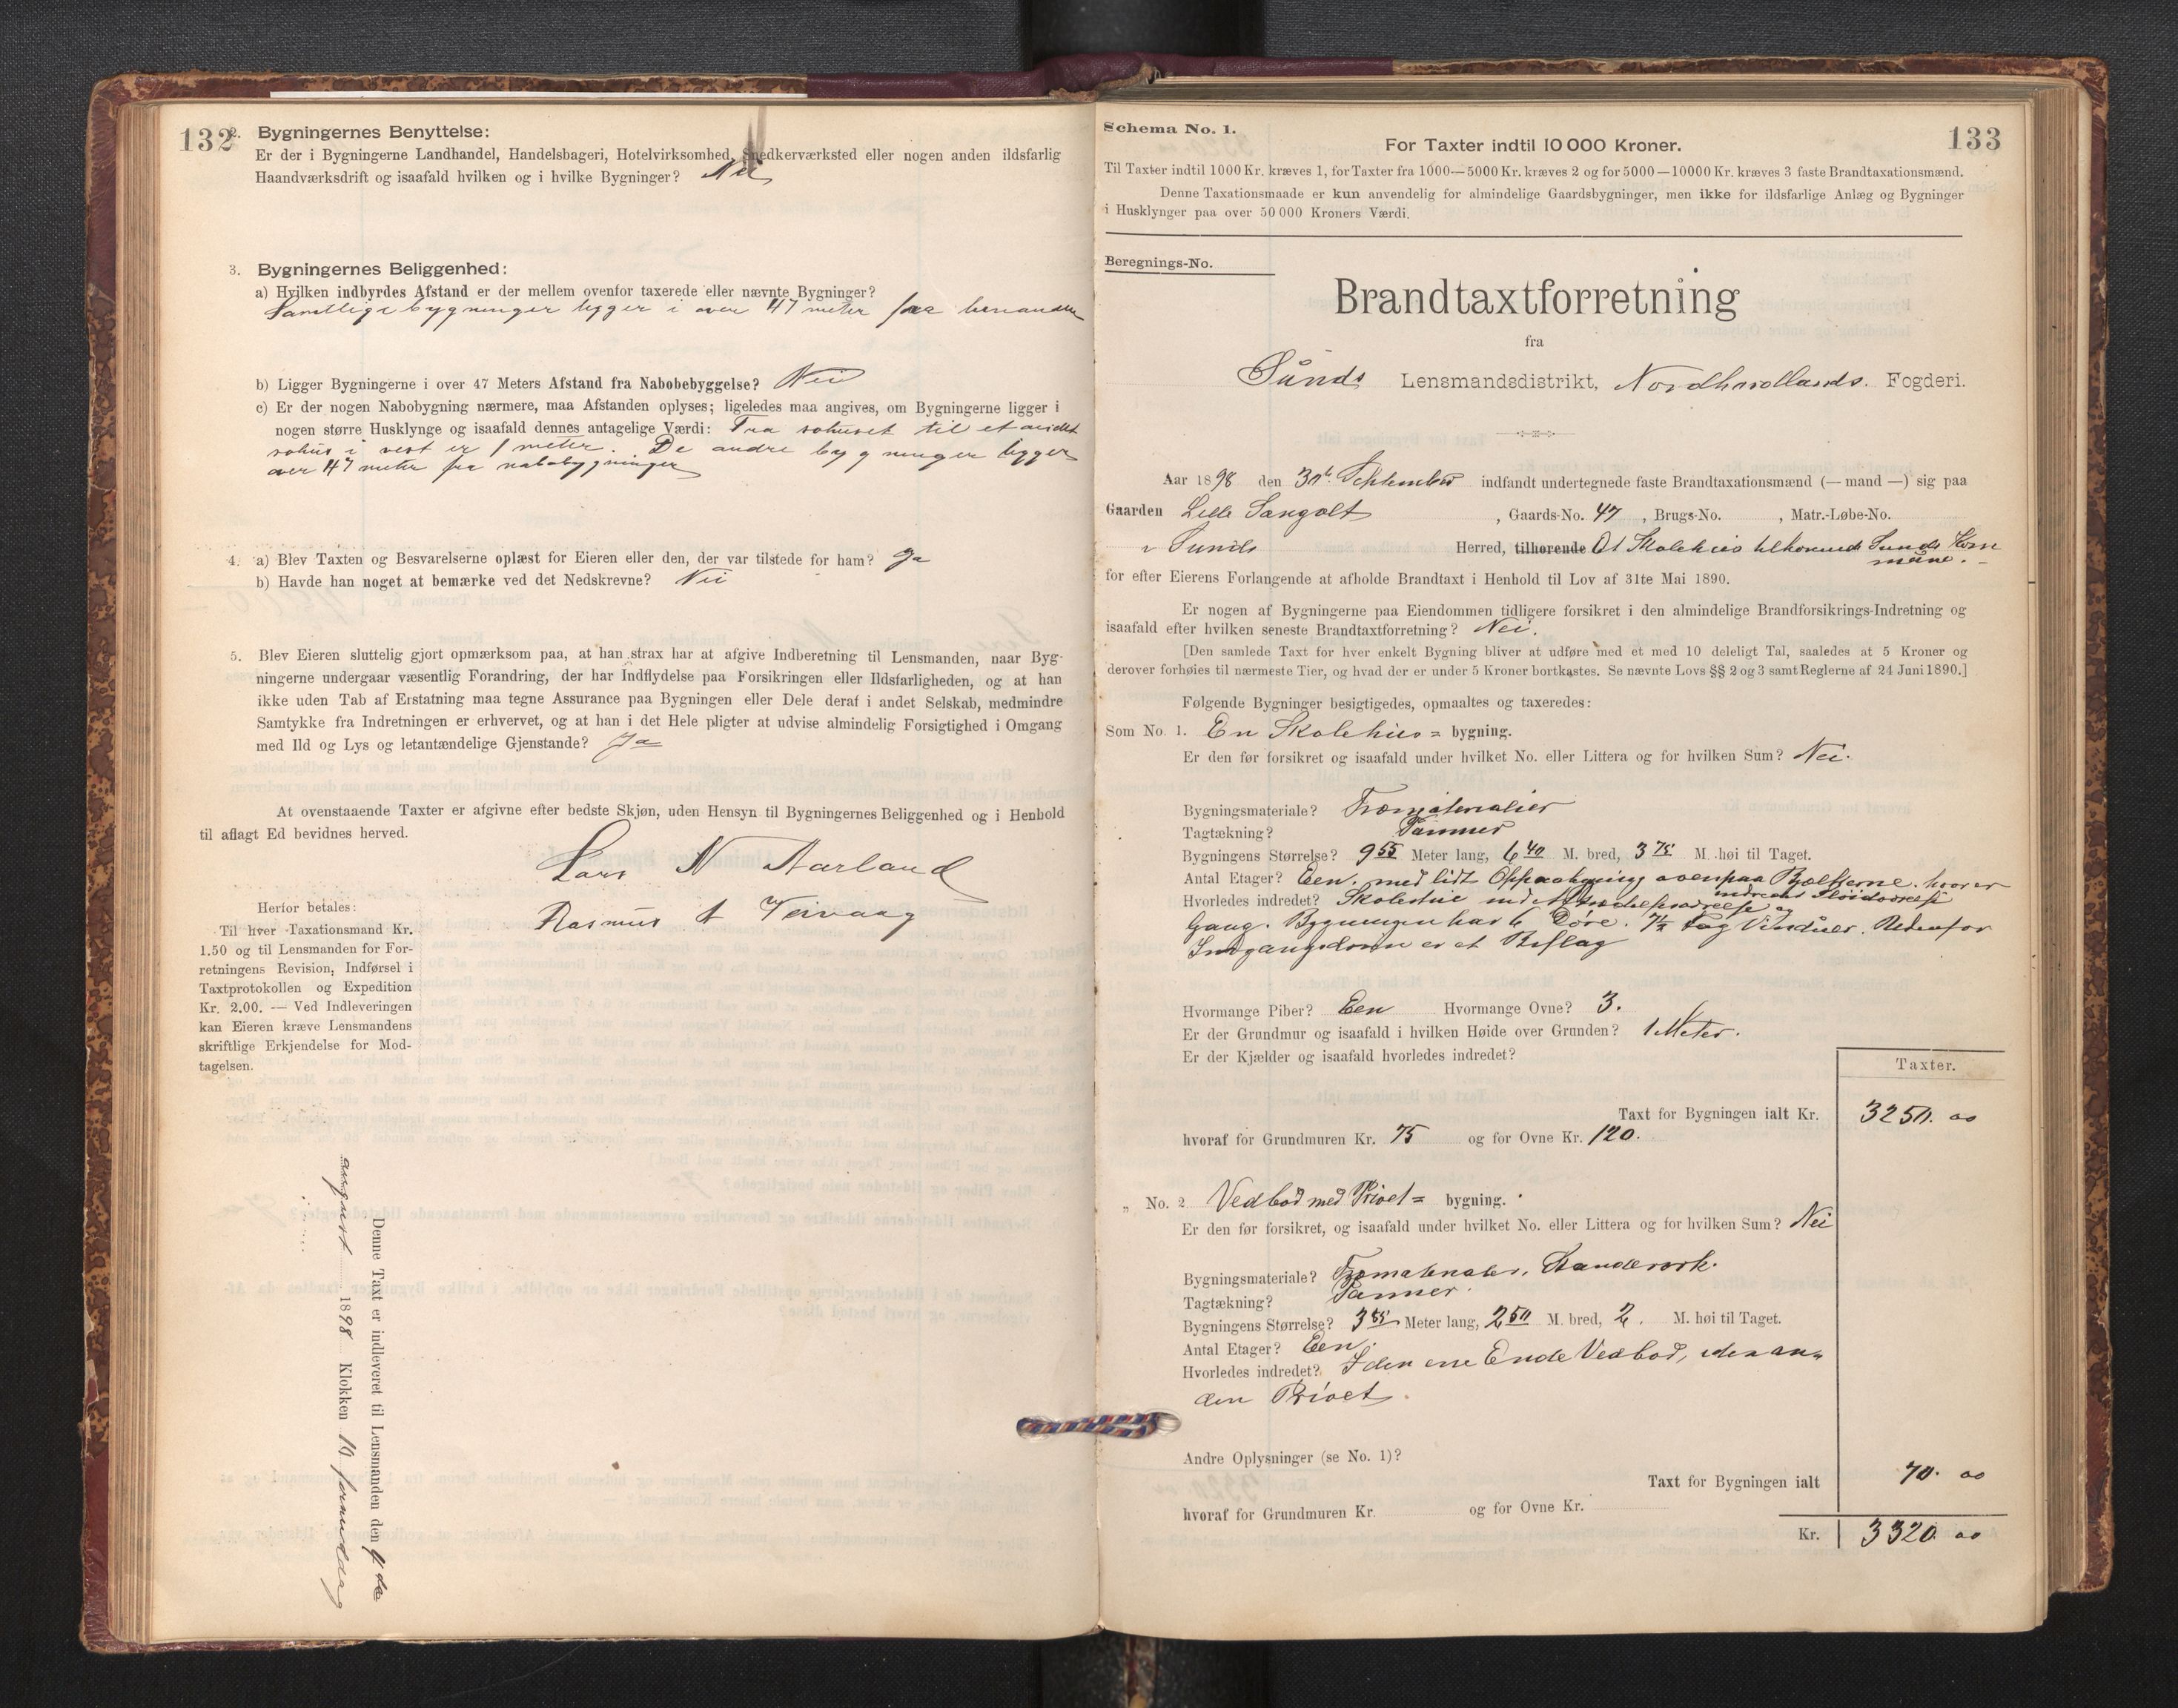 132
2. Bygningernes Benyttelse:
Er der i Bygningerne Landhandel, Handelsbageri, Hotelvirksomhed, Snedkerværksted eller nogen anden ildsfarlig
Haandværksdrift og isaafald hvilken og i hvilke Bygninger? Nei
3. Bygningernes Beliggenhed:
a) Hvilken indbyrdes Afstand er der mellem ovenfor taxerede eller nævnte Bygninger?
Samtlige bygninger ligger i over 47 meter fra hinanden
b) Ligger Bygningerne i over 47 Meters Afstand fra Nabobebyggelse? Nei
c) Er der nogen Nabobygning nærmere, maa Afstanden oplyses; ligeledes maa angives, om Bygningerne ligger i
nogen større Husklynge og isaafald dennes antagelige Værdi: Fra vohuset til et andet
vohus i vest er 1 meter. De andre bygninger ligger
over 47 meter fra nabobygninger
4. a) Blev Taxten og Besvarelserne oplæst for Eieren eller den, der var tilstede for ham? Ja
b) Havde han noget at bemærke ved det Nedskrevne? Nei
5. Blev Eieren sluttelig gjort opmærksom paa, at han strax har at afgive Indberetning til Lensmanden, naar Byg-
ningerne undergaar væsentlig Forandring, der har Indflydelse paa Forsikringen eller Ildsfarligheden, og at han
ikke uden Tab af Erstatning maa tegne Assurance paa Bygningen eller Dele deraf i andet Selskab, medmindre
Samtykke fra Indretningen er erhvervet, og at han i det Hele pligter at udvise almindelig Forsigtighed i Omgang
med Ild og Lys og letantændelige Gjenstande? Ja
At ovenstaaende Taxter er afgivne efter bedste Skjøn, uden Hensyn til Bygningernes Beliggenhed og i Henhold
til aflagt Ed bevidnes herved.
Lars N Aarland
Rasmus A Teivaag
Herfor betales:
Til hver Taxationsmand Kr.
1.50 og til Lensmanden for For-
retningens Revision, Indførsel i
Taxtprotokollen og Expedition
Kr. 2.00. — Ved Indleveringen
kan Eieren kræve Lensmandens
skriftlige Erkjendelse for Mod-
tagelsen.
Denne Taxt er indleveret til Lensmanden den 4de
august 1898 Klokken 10 formiddag
Schema No. 1.
133
For Taxter indtil 10 000 Kroner.
Til Taxter indtil 1000 Kr. kræves 1, for Taxter fra 1000—5000 Kr. kræves 2 og for 5000—10000 Kr. kræves 3 faste Brandtaxationsmænd.
Denne Taxationsmaade er kun anvendelig for almindelige Gaardsbygninger, men ikke for ildsfarlige Anlæg og Bygninger
i Husklynger paa over 50 000 Kroners Værdi.
Beregnings-No.
Brandtaxtforretning
fra
Sunds Lensmandsdistrikt, Nordhordlands. Fogderi.
Aar 1898 den 30te September indfandt undertegnede faste Brandtaxationsmænd (— mand —) sig paa
Gaarden Lille Sangolt, Gaards-No. 47, Brugs-No. , Matr.-Løbe-No.
i Sunds Herred, tilhørende Et Skolehus tilhørende Sunds Kom
mune.
for efter Eierens Forlangende at afholde Brandtaxt i Henhold til Lov af 31te Mai 1890.
Er nogen af Bygningerne paa Eiendommen tidligere forsikret i den almindelige Brandforsikrings-Indretning og
isaafald efter hvilken seneste Brandtaxtforretning? Nei.
[Den samlede Taxt for hver enkelt Bygning bliver at udføre med et med 10 deleligt Tal, saaledes at 5 Kroner og
derover forhøies til nærmeste Tier, og hvad der er under 5 Kroner bortkastes. Se nævnte Lovs §§ 2 og 3 samt Reglerne af 24 Juni 1890.]
Følgende Bygninger besigtigedes, opmaaltes og taxeredes:
Som No. 1. En Skolehus= bygning.
Er den før forsikret og isaafald under hvilket No. eller Littera og for hvilken Sum? Nei.
Bygningsmateriale? Træmaterialier
Tagtækning? Panner
Bygningens Størrelse? 9 55 Meter lang, 6 40 M. bred, 3 75 M. høi til Taget.
Antal Etager? Een. med lidt Oppaabygning ovenpaa Bjelkerne. hvor er
indredet Sløidværelse
Hvorledes indredet? Skolestue og
Gang. Bygningen har 6 Døre. 7½ Fag Vinduer. Udenfor
Indgangsdøren er et Bislag
Hvormange Piber? Een Hvormange Ovne? 3.
Er der Grundmur og isaafald i hvilken Høide over Grunden? 1 Meter.
Er der Kjælder og isaafald hvorledes indredet?
Taxter.
Taxt for Bygningen ialt Kr. 3250. 00
hvoraf for Grundmuren Kr. 75 og for Ovne Kr. 120.
„ No. 2 Vedbod med Privet= bygning.
Er den før forsikret, og isaafald under hvilket No. eller Littera og for hvilken Sum? Nei
Bygningsmateriale? Træmaterialer. Standerverk.
Tagtækning? Panner.
Bygningens Størrelse? 3 85 Meter lang, 2 50 M. bred, 2. M. høi til Taget.
Antal Etager? Een.
Hvorledes indredet? I den ene Ende Vedbod, i den an-
den Privet.
Andre Oplysninger (se No. 1)?
Taxt for Bygningen ialt 70. 00
hvoraf for Grundmuren Kr. og for Ovne Kr.
Kr. 3320. 00